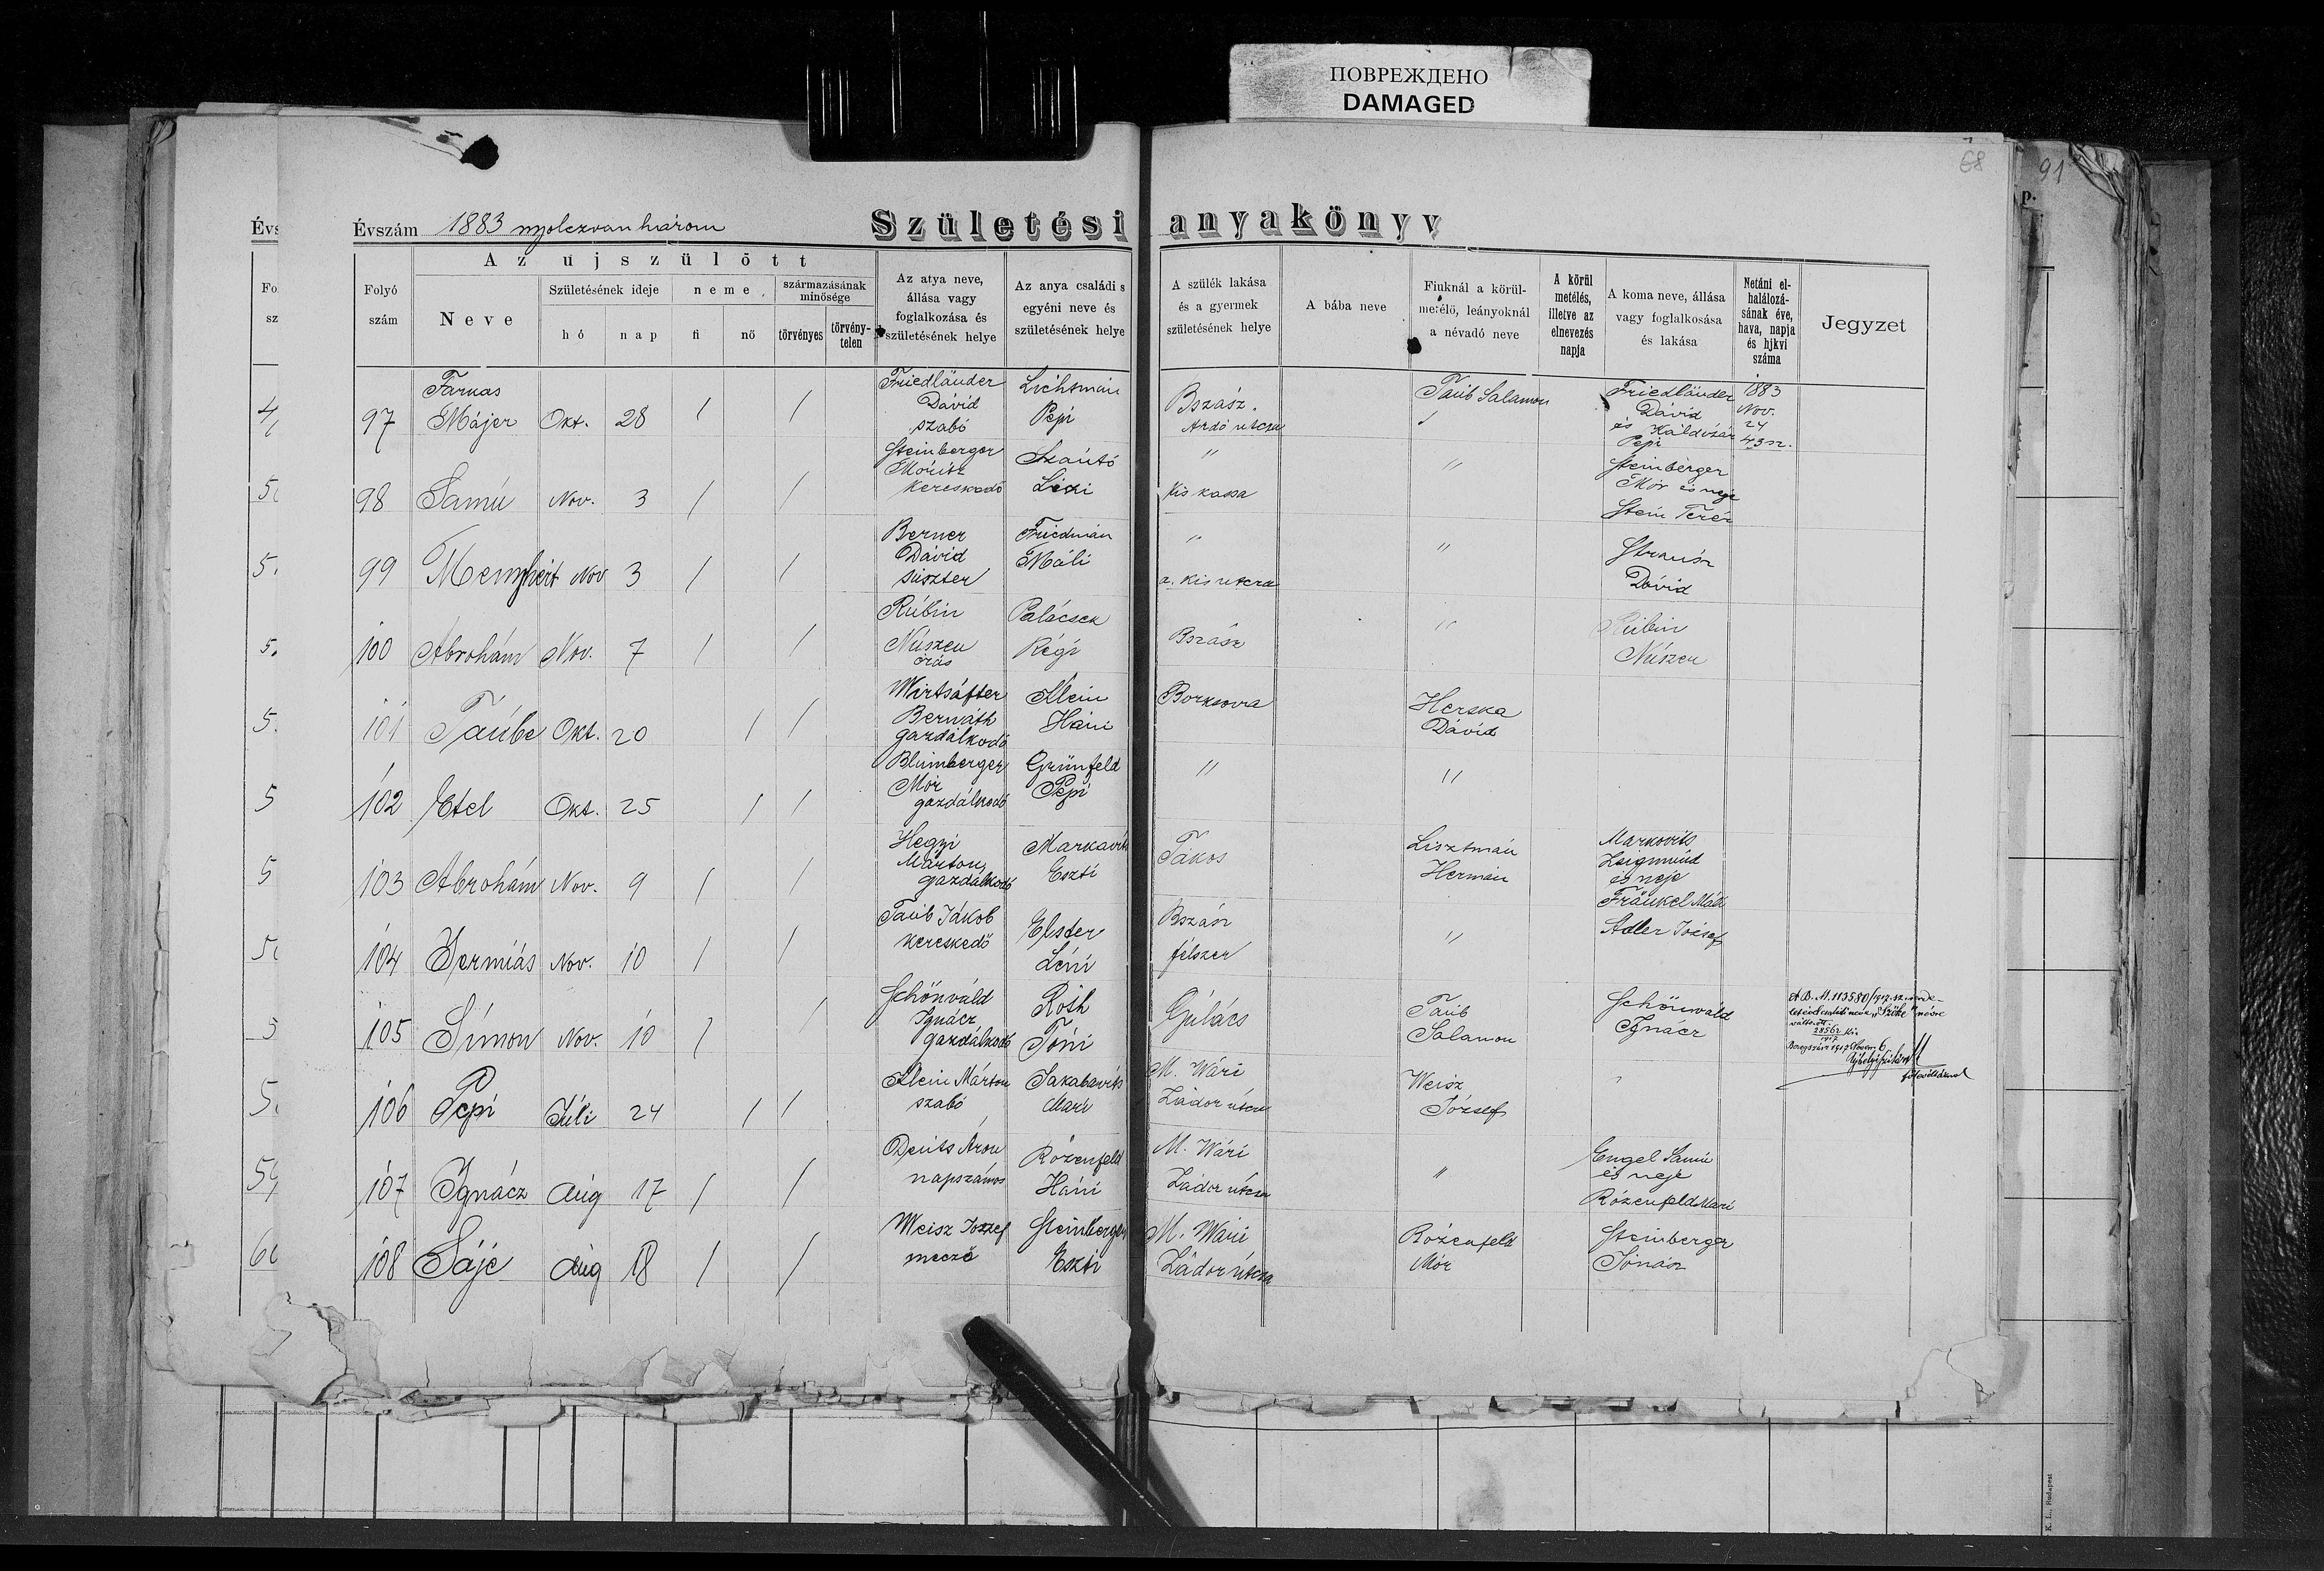 ПОВРЕЖДЕНО
DAMAGED
68
91
p.
Évs
Évszám 1883 nyolczvanhárom
Születési anyakönyv
Fo
sz
Folyó szám
Az ujszülött
Neve
Születésének ideje
hó
nap
neme
fi
nő
származásának minősége
törvényes
törvény-telen
Az atya neve, állása vagy foglalkozása és születésének helye
Az anya családi s egyéni neve és születésének helye
A szülék lakása és a gyermek születésének helye
A bába neve
Fiuknál a körül-metélő, leányoknál a névadó neve
A körül metélés, illetve az elnevezés napja
A koma neve, állása vagy foglalkosása és lakása
Netáni el-halálozá-sának éve, hava, napja és hjkvi száma
Jegyzet
97 Farkas Májer Okt. 28 / / Friedländer Dávid szabó Lichtmán Pepi Bszász. Ardó utcza Taub Salamon Friedländer Dávid és Pepi 1883 Nov. 24 43 sz.
98 Samú Nov. 3 / / Steinberger Móritz kereskedő Szántó Lizi " Kis kassa " Steinberger Mór és neje Stein Teréz
99 Menyhért Nov 3 / / Berner Dávid suszter Friedmán Máli " a. Kis utcza " Strausz Dávid
100 Abrohám Nov. 7 / / Rúbin Núszen órás Palácsek Régi Bszász " Rúbin Núszen
101 Taúbe Okt. 20 / / Wirtsáfter Bernáth gazdálkodó Klein Háni Borksova Herska Dávid
102 Etel Okt. 25 / / Blumberger Mór gazdálkodó Grünfeld Pepi " "
103 Abrohám Nov. 9 / / Hegyi Márton gazdálkodó Markovits Eszti Tákos Lisztmán Hermán Markovits Zsigmund és neje Fränkel Máli
104 Jermiás Nov. 10 / / Taub Jákob kereskedő Elster Léni Bszász félszer " Adler József
105 Símon Nov. 10 / / Schönváld Ignácz gazdálkodó Róth Tóni Gúlács Taub Salamon Schönwáld Ignácz A B. M. 113580/1917. sz. rende-
letével családi neve „Szőke" névre
változott.
28562 Ki.
1917
106 Pepi Júli 24 / / Klein Márton szabó Jakabovits Mari M. Wári Zádor útcza Weisz József "
107 Ignácz Aúg 17 / / Deuts Áron napszámos Rózenfeld Háni M. Wári Zádor útcza " Engel Samú és neje Rózenfeld Mari
108 Sáje Aúg 18 / / Weisz József meczé Steinberger Eszti M. Wári Zádor útcza Rózenfeld Mór Steinberger Jónász
K. L., Budapest